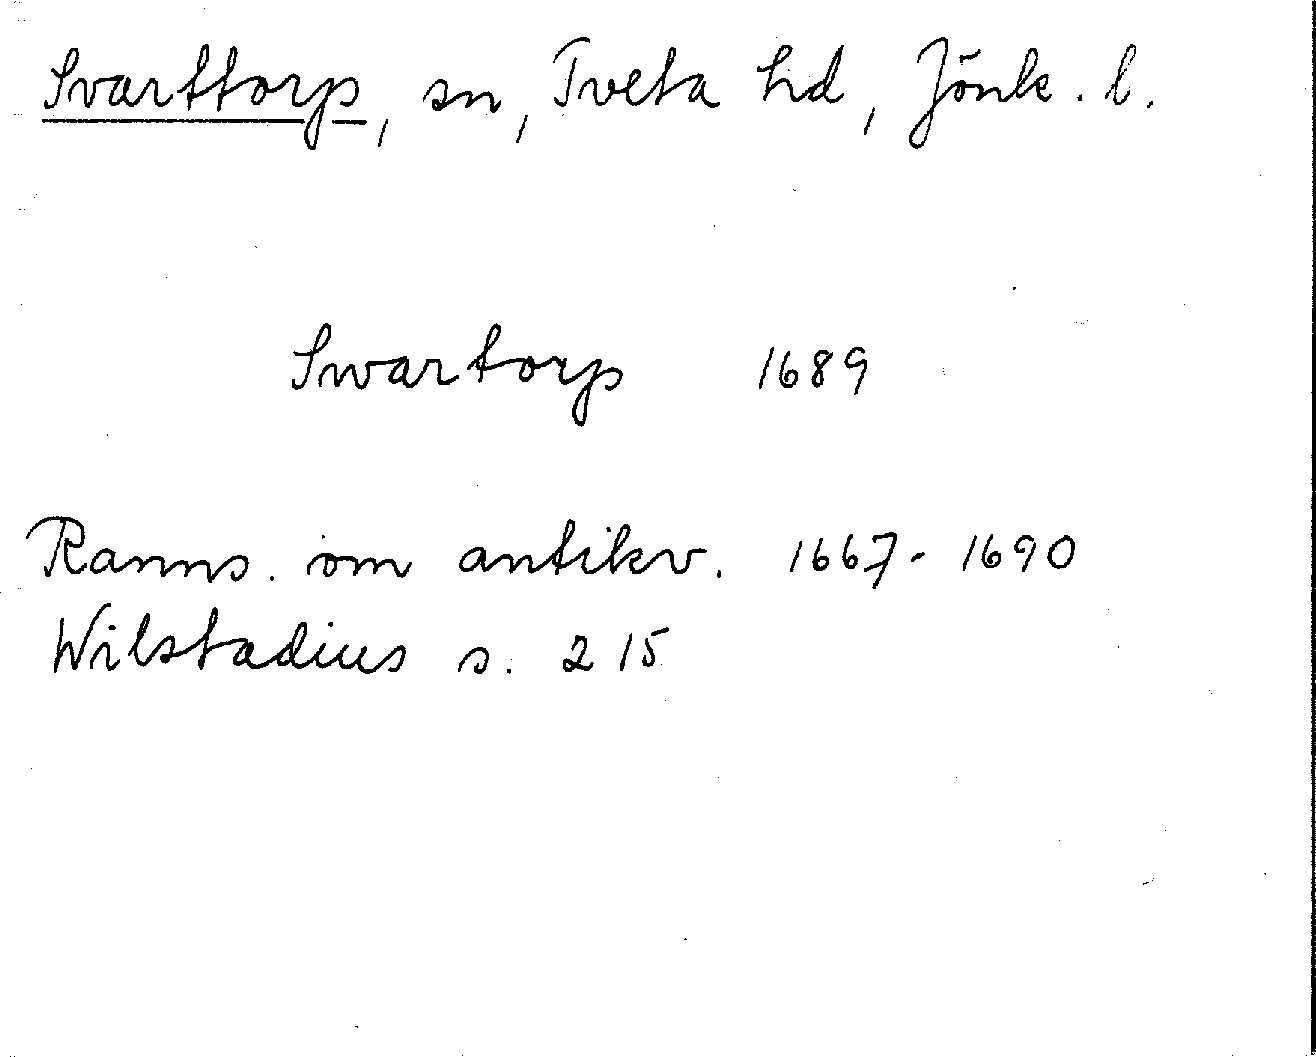 Svarttorp, sn, Tveta hd, Jönk. l.
Swartorp 1689
Ranns. om antikv. 1667-1690
Wilstadius s. 215